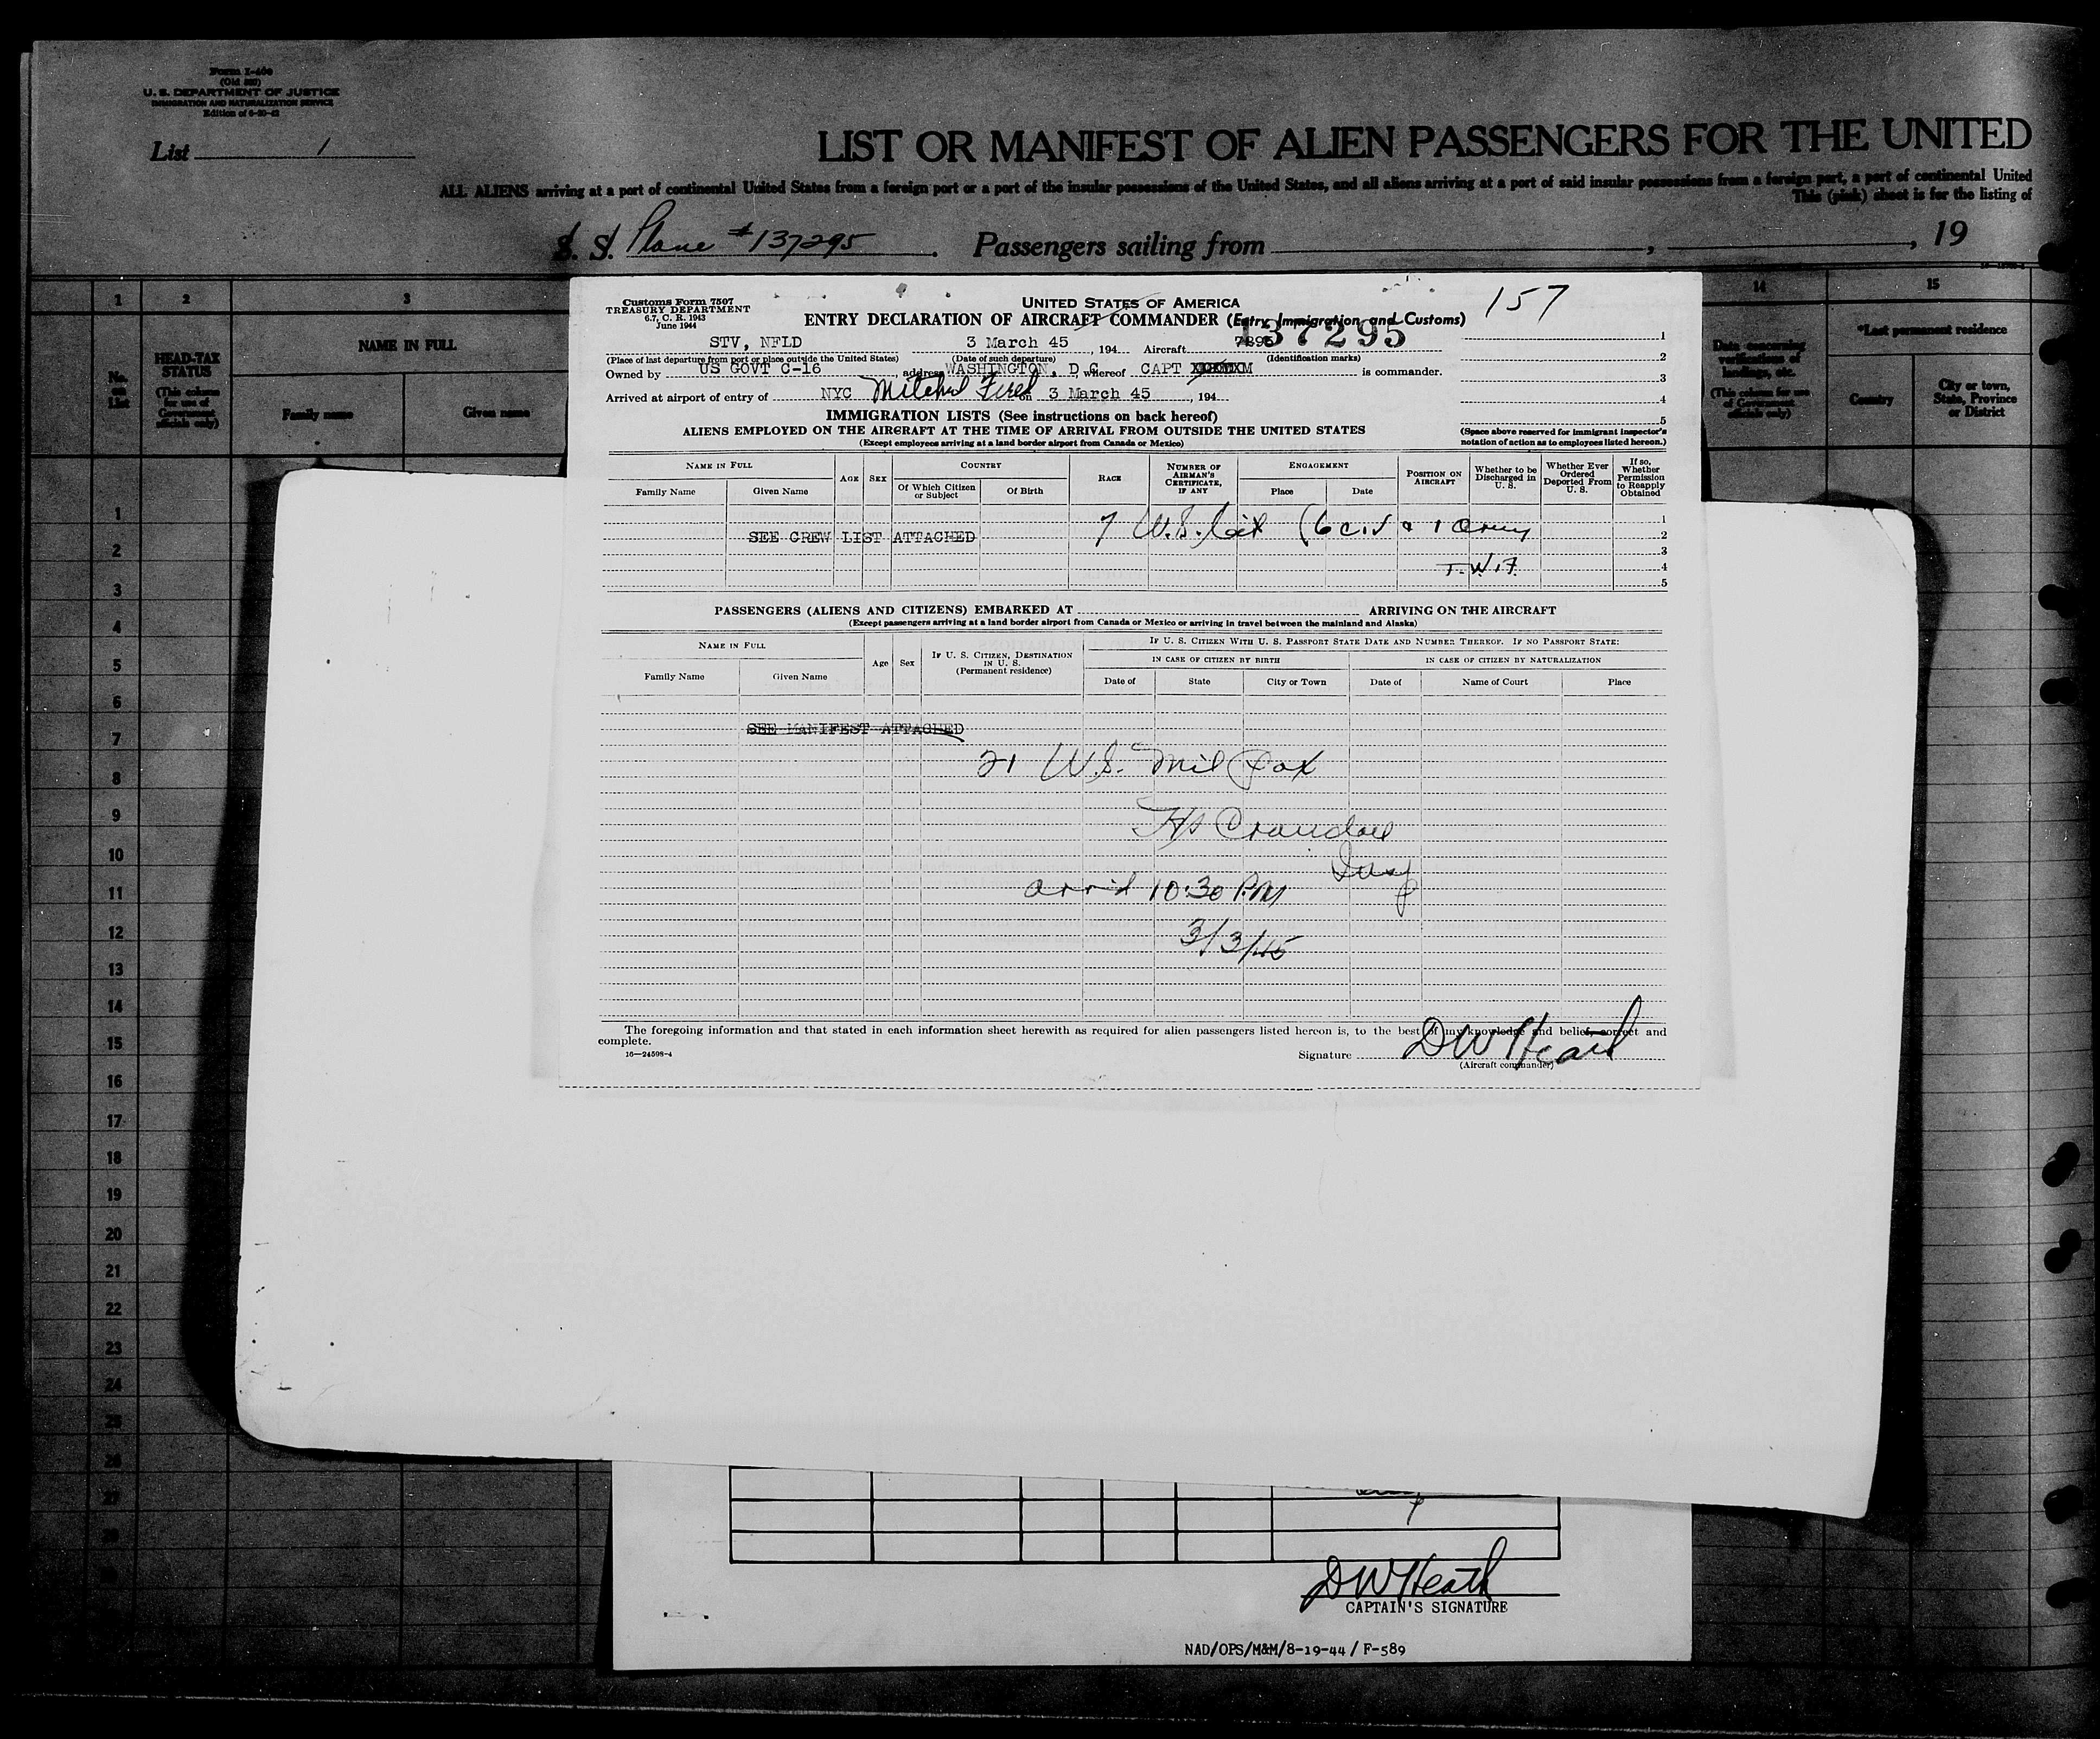 Form I-466
(Old 682)
U. S. DEPARTMENT OF JUSTICE
IMMIGRATION AND NATURALIZATION SERVICE
List 1
LIST OR MANIFEST OF ALIEN PASSENGERS FOR THE UNITED
ALL ALIENS arriving at a port of continental United States from a foreign port or a port of the insular possessions of the United States, and all aliens arriving at a port of said insular possessions from a foreign port, a port of continental United
This (pink) sheet is for the listing of
S. S. Plane #137295. Passengers sailing from , , 19
1 2 3 14 15
No. on List
HEAD-TAX STATUS
(This column for use of Government officials only)
NAME IN FULL
Family name Given name
Data concerning verifications of landings, etc.
(This column for use of Government officials only)
*Last permanent residence
Country City or town, State, Province or District
Customs Form 7507
TREASURY DEPARTMENT
6.7, C. R. 1943
June 1944
UNITED STATES OF AMERICA
157
ENTRY DECLARATION OF AIRCRAFT COMMANDER (Entry, Immigration and Customs)
137295
STV, NFLD 3 March 45, 194 Aircraft 7295
(Place of last departure from port or place outside the United States) (Date of such departure) (Identification marks)
Owned by US GOVT C-16, address WASHINGTON, D C whereof CAPT is commander.
Arrived at airport of entry of NYC Mitchel Field on 3 March 45, 194
1
2
3
4
5
IMMIGRATION LISTS (See instructions on back hereof)
ALIENS EMPLOYED ON THE AIRCRAFT AT THE TIME OF ARRIVAL FROM OUTSIDE THE UNITED STATES
(Except employees arriving at a land border airport from Canada or Mexico)
(Space above reserved for immigrant inspector's notation of action as to employees listed hereon.)
NAME IN FULL AGE SEX COUNTRY RACE NUMBER OF AIRMAN'S CERTIFICATE, IF ANY ENGAGEMENT POSITION ON AIRCRAFT Whether to be Discharged in U. S. Whether Ever Ordered Deported From U. S. If so, Whether Permission to Reapply Obtained
Family Name Given Name Of Which Citizen or Subject Of Birth Place Date
7 U.S. Cit (6 civ & 1 Army
SEE CREW LIST ATTACHED
T.W.F.
1
2
3
4
5
PASSENGERS (ALIENS AND CITIZENS) EMBARKED AT ARRIVING ON THE AIRCRAFT
(Except passengers arriving at a land border airport from Canada or Mexico or arriving in travel between the mainland and Alaska)
NAME IN FULL Age Sex IF U. S. CITIZEN, DESTINATION IN U. S. (Permanent residence) IF U. S. CITIZEN WITH U. S. PASSPORT STATE DATE AND NUMBER THEREOF. IF NO PASSPORT STATE:
IN CASE OF CITIZEN BY BIRTH IN CASE OF CITIZEN BY NATURALIZATION
Family Name Given Name Date of State City or Town Date of Name of Court Place
SEE MANIFEST ATTACHED
21 U.S. Mil Pax
Crandall
Insp
arr'd 10:30 P.M
3/3/45
The foregoing information and that stated in each information sheet herewith as required for alien passengers listed hereon is, to the best of my knowledge and belief, correct and
complete.
16—24598-4
Signature DW Heath
(Aircraft commander)
1
2
3
4
5
6
7
8
9
10
11
12
13
14
15
16
17
18
19
20
21
22
23
24
25
26
27
28
DW Heath
CAPTAIN'S SIGNATURE
NAD/OPS/M&M/8-19-44 / F-589